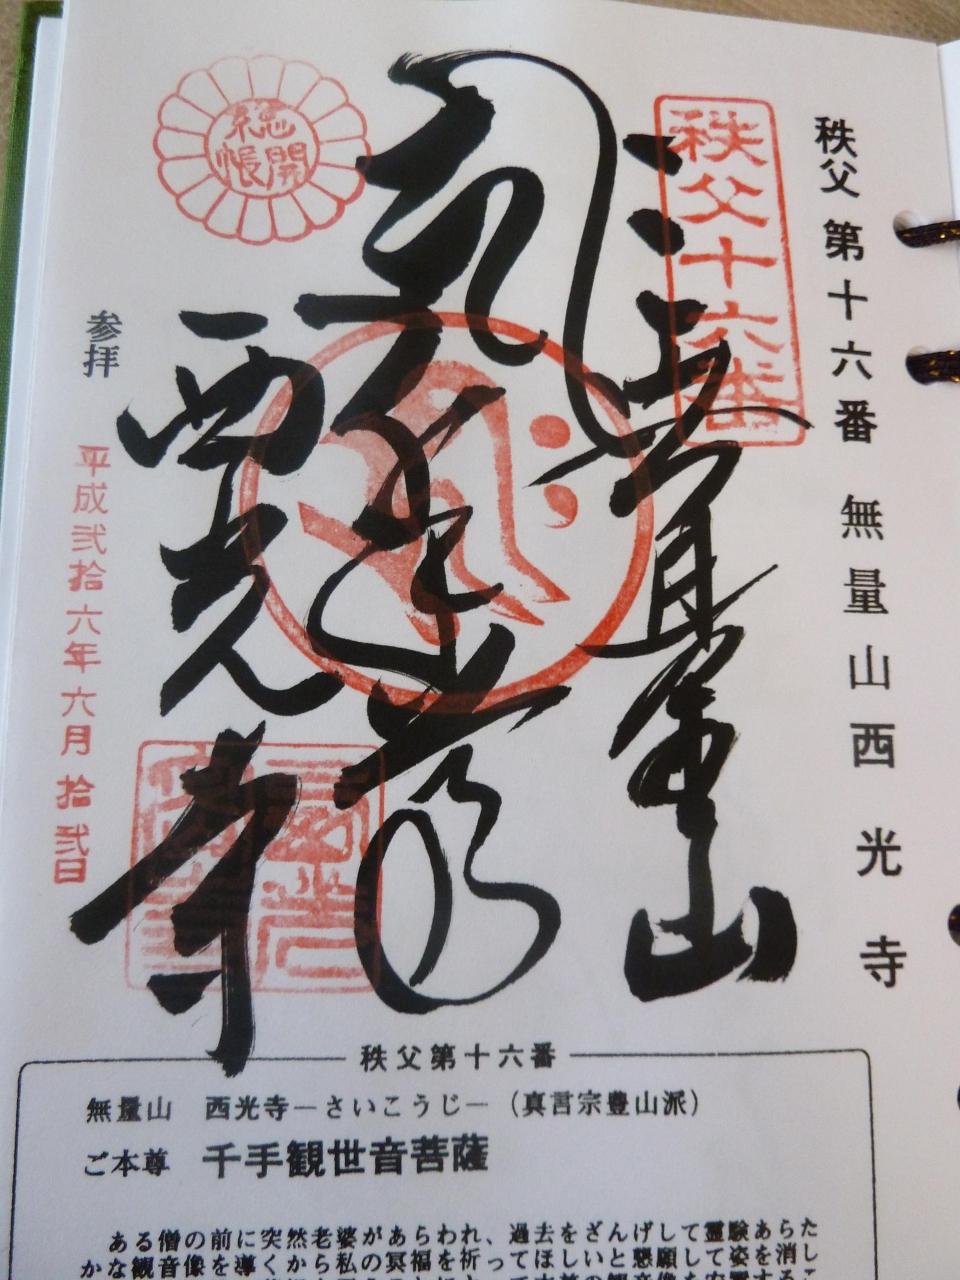 秩父第十六番 無量山西光寺
秩父十六番
無量山
西光寺
総開帳
参拝
平成弐拾六年六月拾弐日
秩父第十六番
無量山 西光寺―さいこうじ―(真言宗豊山派)
ご本尊 千手観世音菩薩
ある僧の前に突然老婆があらわれ、過去をざんげして霊験あらた
かな観音像を導くから私の冥福を祈ってほしいと懇願して姿を消し